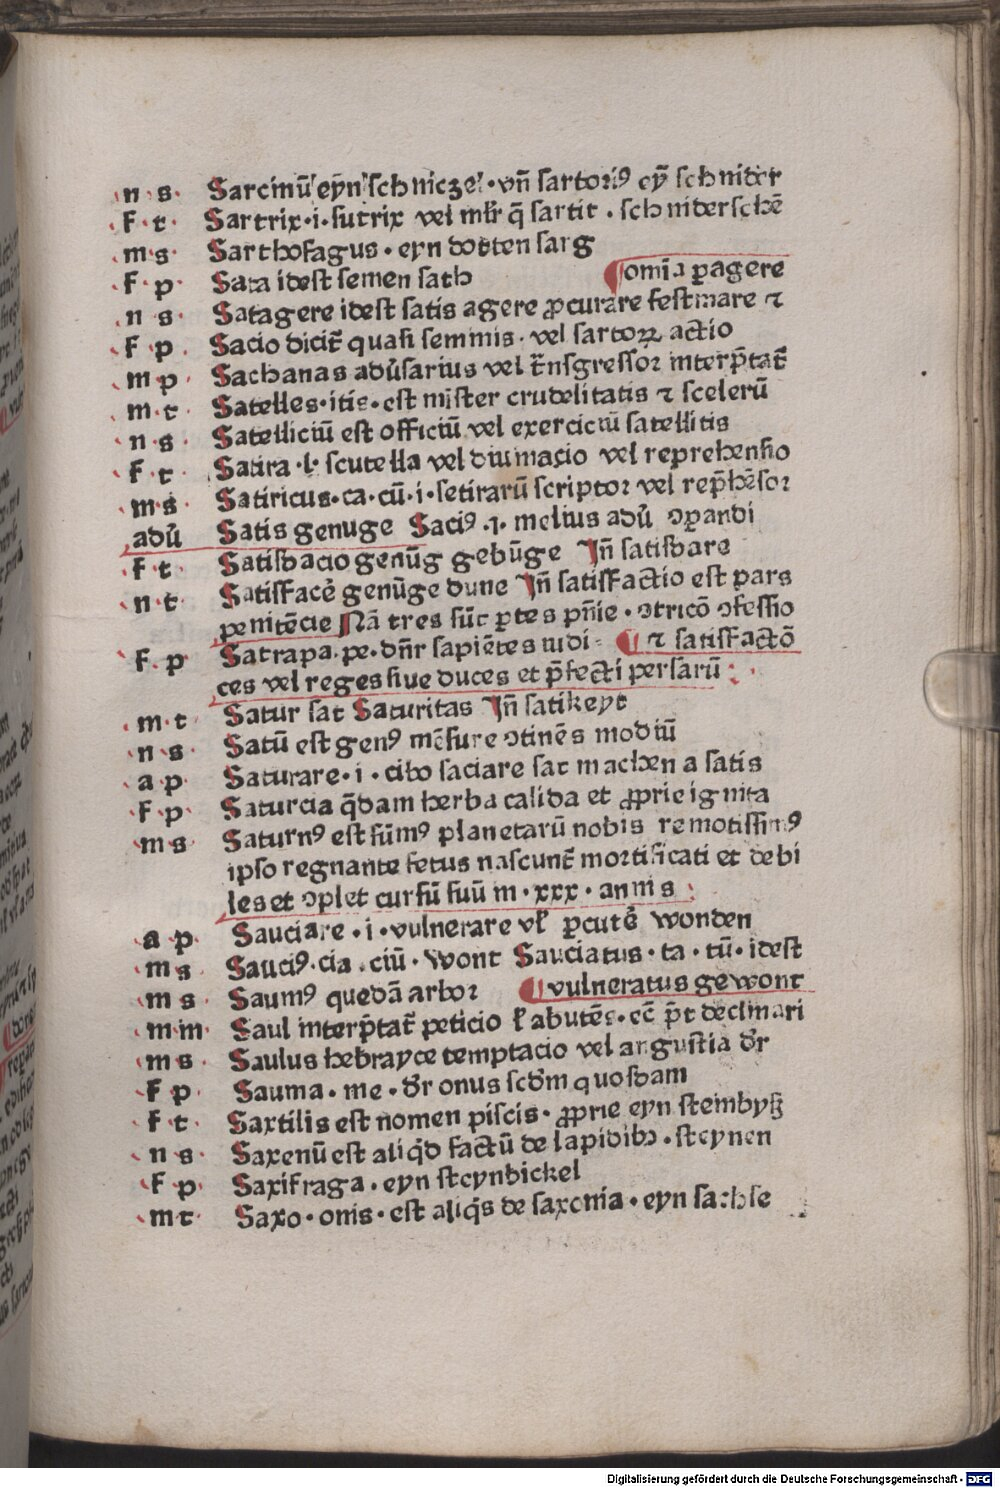 n s Sarcinū eyn schniczel · vn̄ sartoriꝰ eȳ schnider
f t Sartrix · i · sutrix vel ml̄r q̄ sartit · schniderschē
m s Sarthofagus · eyn dotten sarg
f p Sata idest semen sath ¶ omīa ꝑagere
n s Satagere idest satis agere ꝓcurare festinare ⁊
f p Sacio dicit̄ quasi seminis · vel sartoꝝ actio
m p Sathanas adu̾sarius vel t̄nsgressor interp̄tat̄
m t Satelles · itis · est mister crudelitatis ⁊ scelerū
n s Satelliciū est officiū vel exerciciū satellitis
f t Satira · l · scutella vel diuinacio vel reprehensio
m s Satiricus · ca · cū · i · setirarū scriptor vel rep̄hēsor
adū Satis genuge Saciꝰ · i · melius adū ꝯꝑandi
f t Satisdacio genūg gebūge Jn̄ satisdare
n t Satisfacē genūge dune Jn̄ satisfactio est pars
penitēcie Nā tres sūt ꝑtes pn̄ie · ꝯtricō ꝯfessio
f p Satrapa · pe · dn̄r sapiētes iudi ¶ ⁊ satisfactō
ces vel reges siue duces et p̄fecti persarū
m t Satur sat Saturitas Jn̄ satikeyt
n s Satū est genꝰ mēsure ꝯtinēs modiū
a p Saturare · i · cibo saciare sat machen a satis
f p Saturcia q̄dam herba calida et ꝓprie ignita
m s Saturnꝰ est sūmꝰ planetarū nobis remotissimꝰ
ipso regnante fetus nascunt̄ mortificati et debi
les et ꝯplet cursū suū in · xxx · annis
a p Sauciare · i · vulnerare vl̄ ꝑcutē wonden
m s Sauciꝰ · cia · ciū · Wont Sauciatus · ta · tū · idest
m s Saumꝰ quedā arbor ¶ vulneratus gewont
m in Saul interp̄tat̄ peticio l̄ abutēs · ec̄ p̄t declinari
m s Saulus hebrayce temptacio vel angustia d̄r
f p Sauma · me · d̄r onus scd̄m quosdam
f t Saxtilis est nomen piscis · ꝓprie eyn steinbyß
n s Saxenū est aliq̄d factū de lapidibꝫ · steynen
f p Saxifraga · eyn steynbickel
m t Saxo · onis · est aliq̄s de saxonia · eyn sachse
Digitalisierung gefördert durch die Deutsche Forschungsgemeinschaft · DFG